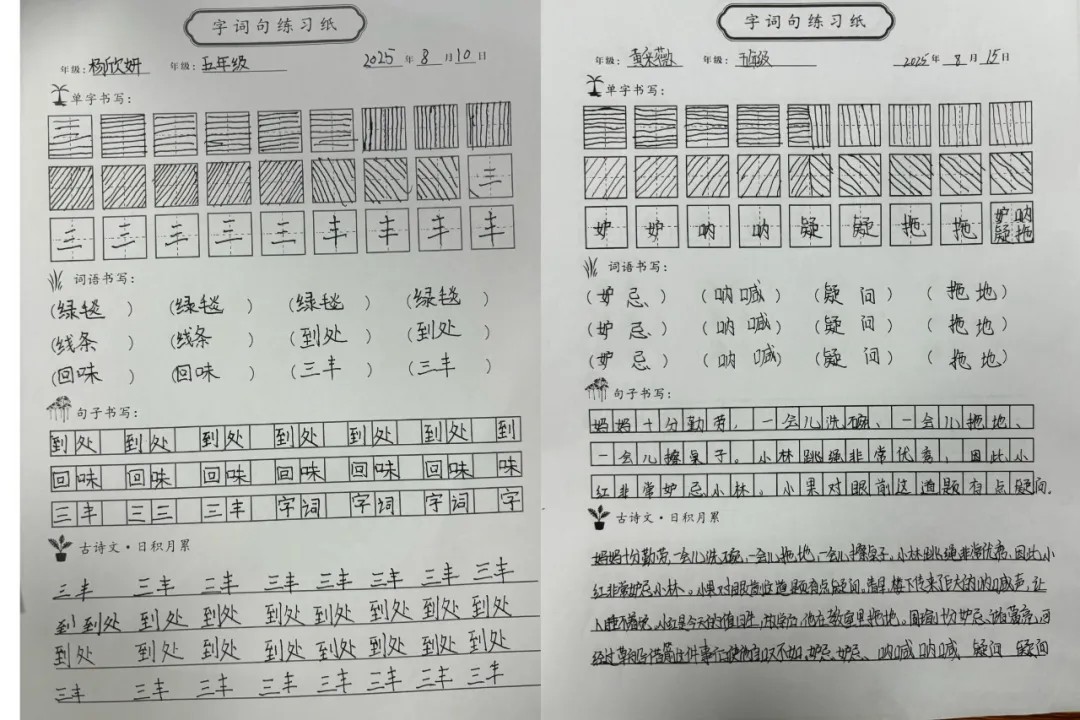 字词句练习纸
年级：杨欣妍 年级：五年级 2025年8月10日
单字书写：
三
三 三 三 三 三 丰 丰 丰 丰
词语书写：
（绿毯） （绿毯） （绿毯） （绿毯）
（线条） （线条） （到处） （到处）
（回味） （回味） （三丰） （三丰）
句子书写：
到处 到处 到处 到处 到处 到处 到
回味 回味 回味 回味 回味 回味 味
三丰 三三 三丰 字词 字词 字词 字
古诗文·日积月累
三丰 三丰 三丰 三丰 三丰 三丰 三丰 三丰
到 到处 到处 到处 到处 到处 到处 到处
到处 到处 到处 到处 到处 到处 到处
三丰 三丰 三丰 三丰 三丰 三丰 三丰
字词句练习纸
年级：黄采薇 年级：五年级 2025年8月15日
单字书写：
妒 妒 呐 呐 疑 疑 拖 拖 妒呐疑拖
词语书写：
（妒忌） （呐喊） （疑问） （拖地）
（妒忌） （呐喊） （疑问） （拖地）
（妒忌） （呐喊） （疑问） （拖地）
句子书写：
妈妈十分勤劳，一会儿洗碗、一会儿拖地、
一会儿擦桌子。小林跳绳非常优秀，因此小
红非常妒忌小林。小果对眼前这道题有点疑问。
古诗文·日积月累
妈妈十分勤劳，一会儿洗碗，一会儿拖地，一会儿擦桌子。小林跳绳非常优秀，因此小
红非常妒忌小林。小果对眼前这道题有点疑问。楼下传来了巨大的呐喊声，让
人睡不着觉。小红是今天的值日生，放学后，他在教室里拖地。
妒忌 妒忌、呐喊 呐喊 疑问 疑问